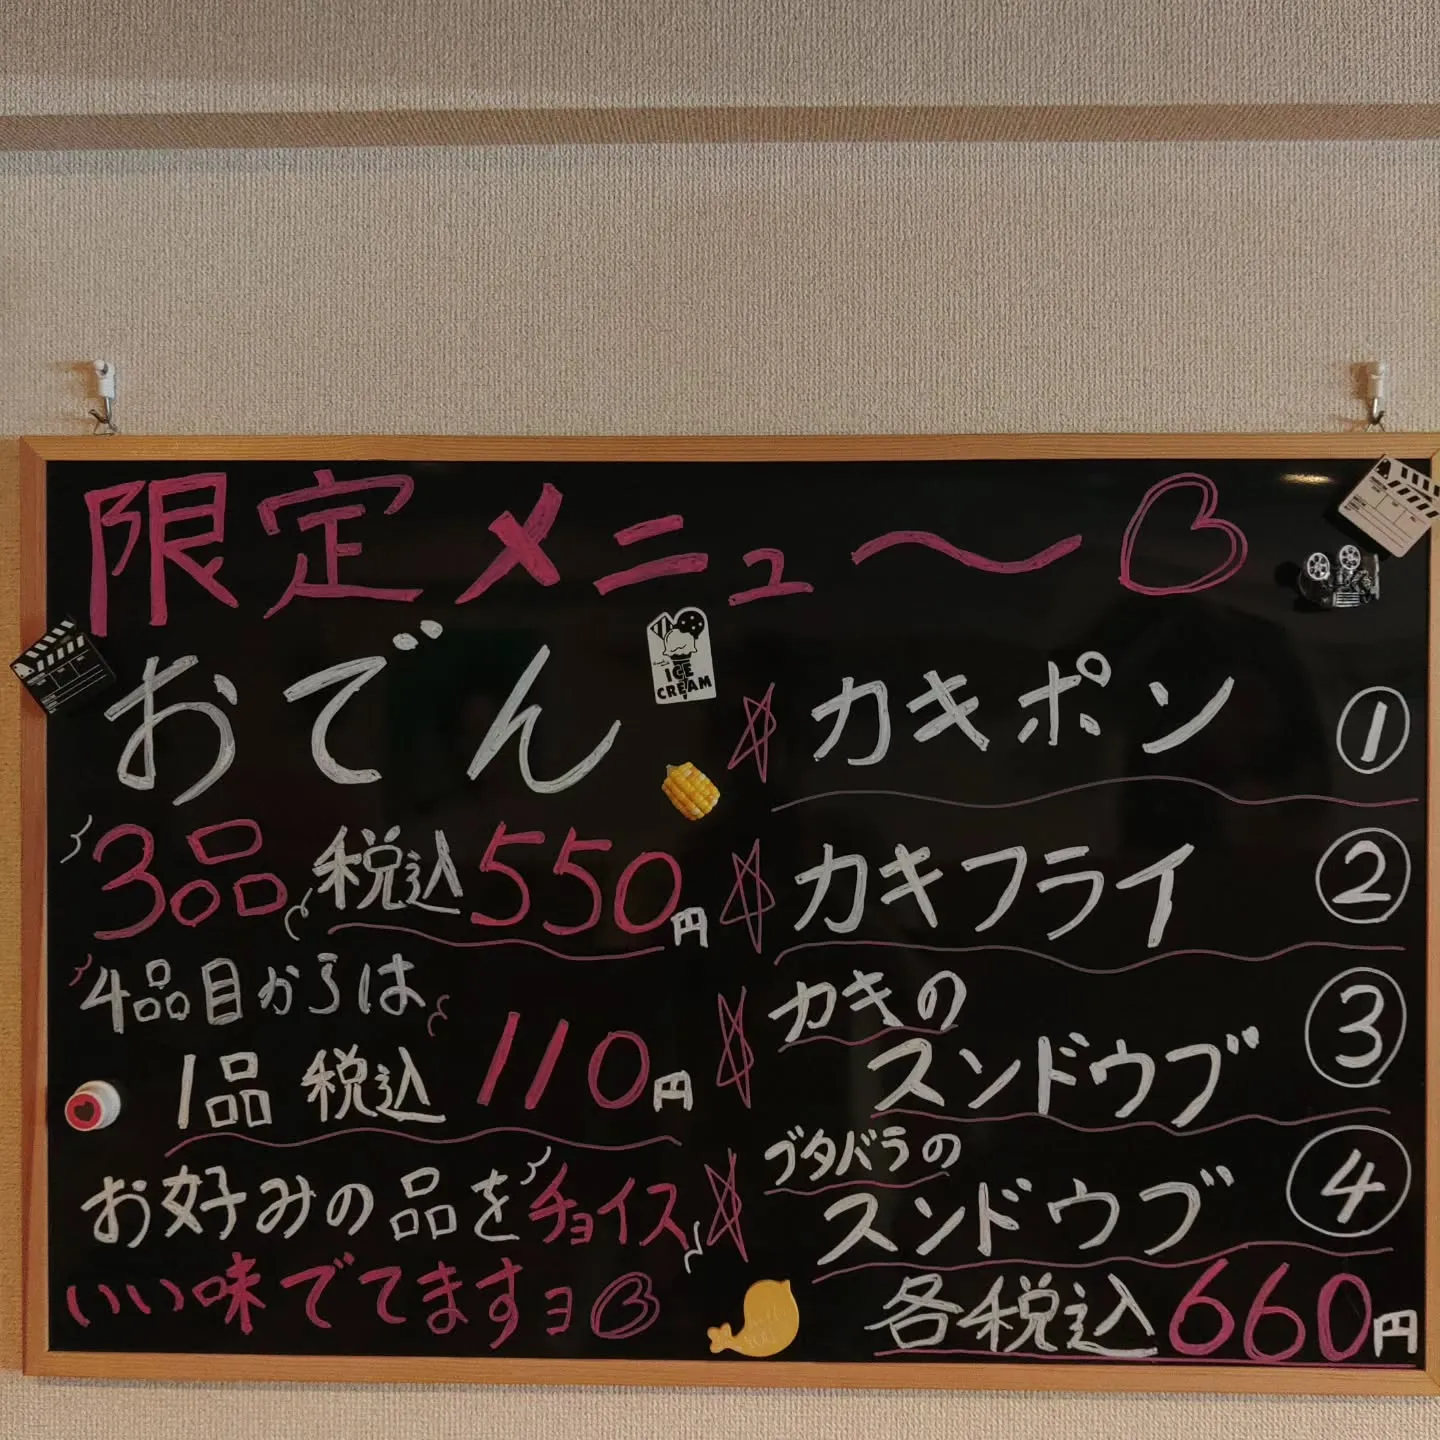 限定メニュー〜♡
おでん
3品 税込550円
4品目からは
1品 税込 110円
お好み の 品をチョイス
いい味でてますヨ♡
ICE
CREAM
☆ カキポン ①
☆ カキフライ ②
☆ カキの
スンドゥブ ③
☆ ブタバラの
スンドゥブ ④
各税込660円